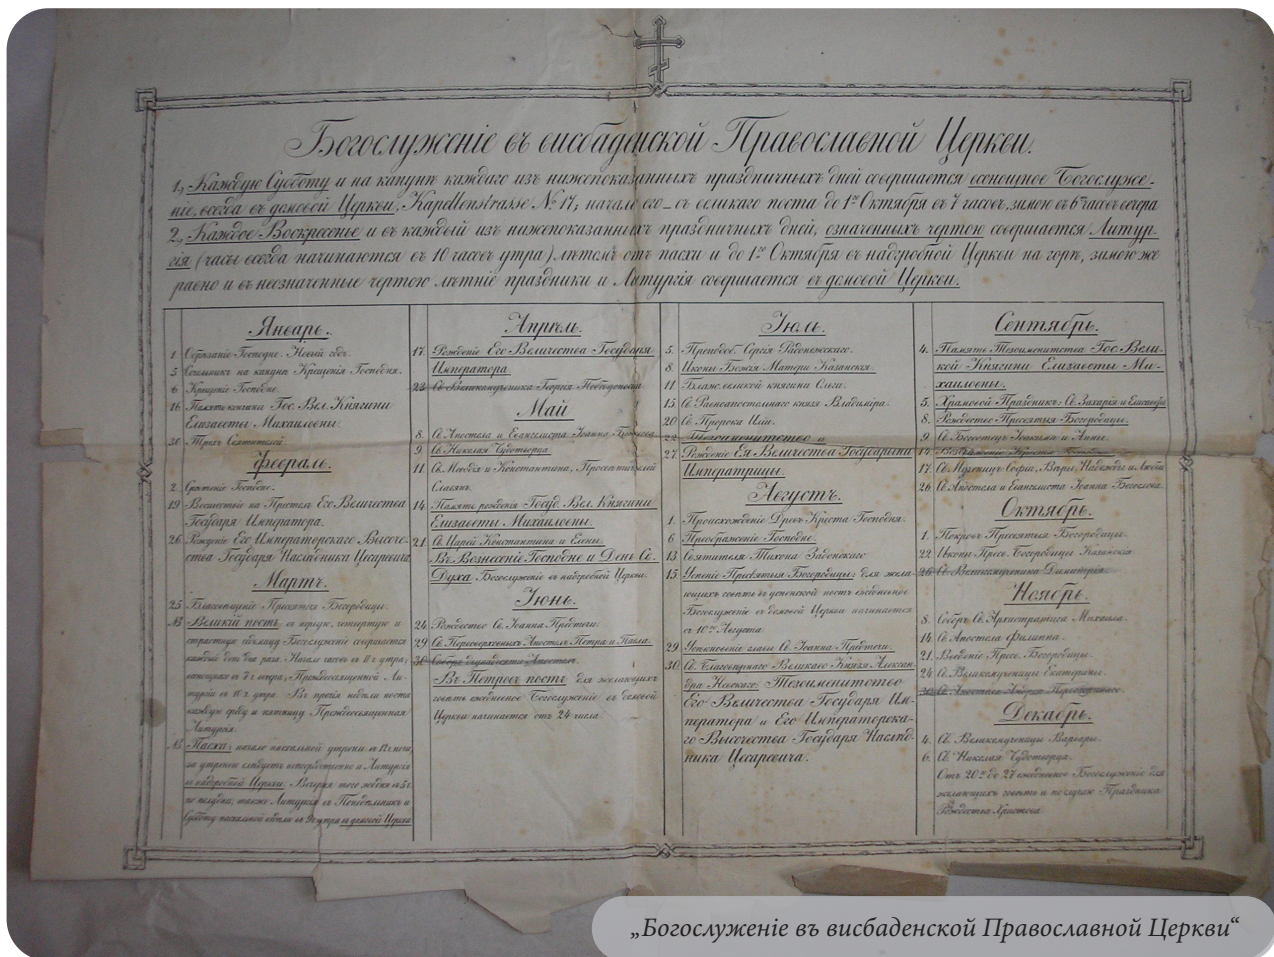 Богослуженіе въ висбаденской Православной Церкви.
1., Каждую Субботу и на канунѣ каждаго изъ нижепоказанныхъ праздничныхъ дней совершается всенощное Богослуже-
ніе, всегда въ домовой Церкви, Kapellenstrasse № 17; начало его – съ великаго поста до 1го Октября въ 7 часовъ, зимою въ 6ть часовъ вечера
2., Каждое Воскресенье и въ каждый изъ нижепоказанныхъ праздничныхъ дней, означенныхъ чертою совершается Литур-
гія (часы всегда начинаются въ 10 часовъ утра) лѣтомъ отъ пасхи и до 1го Октября въ надгробной Церкви на горѣ, зимою же
равно и въ неозначенные чертою лѣтніе праздники и Литургія совершается въ домовой Церкви.
Январь.
1. Обрѣзаніе Господне. Новый годъ.
5 Сочельникъ на канунѣ Крещенія Господня.
6 Крещеніе Господне.
16 Память кончины Гос. Вел. Княгини
Елизаветы Михаиловны.
30 Трехъ Святителей.
Февраль.
2. Срѣтеніе Господне.
19 Восшествіе на Престолъ Его Величества
Государя Императора.
26 Рожденіе Его Императорскаго Высоче-
ства Государя Наслѣдника Цесаревича
Мартъ.
25 Благовѣщеніе Пресвятыя Богородицы.
NB Великій постъ, въ первую, четвертую и
страстную седмицу Богослуженіе совершается
каждый день два раза. Начало часовъ въ 11 ч. утра,
въ 7 ч. вечера, Преждеосвященной Ли-
тургіи въ 10 ч. утра. Въ прочія недѣли поста
каждую среду и пятницу Преждеосвященная
Литургія.
NB Пасха: начало пасхальной утрени въ 12 ч. ночи,
за утренею слѣдуетъ непосредственно и Литургія
въ надгробной Церкви. Вечерня того же дня въ 5 ч
по полудни, также Литургія въ Понедѣльникъ и
Субботу пасхальной недѣли въ 9 ч утра въ домовой Церкви
Апрѣль.
17. Рожденіе Его Величества Государя
Императора.
23 Св. Великомученика Георгія Побѣдоносца
Май
8. Св. Апостола и Евангелиста Іоанна Богослова
9. Св. Николая Чудотворца
11 Св. Меѳодія и Константина, Просвѣтителей
Славянъ.
14 Память рожденія Госуд. Вел. Княгини
Елизаветы Михаиловны.
21. Св. Царей Константина и Елены.
Въ Вознесеніе Господне и День Св.
Духа Богослуженіе въ надгробной Церкви.
Іюнь.
24 Рождество Св. Іоанна Предтечи.
29 Св. Первоверховныхъ Апостолъ Петра и Павла.
30 Собора двунадесяти Апостолъ.
Въ Петровъ постъ для желающихъ
говѣть ежедневное Богослуженіе въ домовой
Церкви начинается отъ 24 числа.
Іюль.
5. Преподоб. Сергія Радонежскаго.
8. Иконы Божія Матери Казанскія.
11 Блаж. великой княгини Ольги.
15 Св Равноапостольнаго князя Владиміра.
20 Св Пророка Иліи.
22 Тезоименитство и
27 Рожденіе Ея Величества Государыни
Императрицы.
Августъ.
1. Происхожденіе Древъ Креста Господня.
6 Преображеніе Господне.
13 Святителя Тихона Задонскаго
15 Успеніе Пресвятыя Богородицы: для жела-
ющихъ говѣть въ успенскій постъ ежедневное
Богослуженіе въ домовой Церкви начинается
съ 10го Августа.
29 Усѣкновеніе главы Св. Іоанна Предтечи.
30 Св. Благовѣрнаго Великаго Князя Алексан-
дра Невскаго: Тезоименитство
Его Величества Государя Им-
ператора и Его Императорска-
го Высочества Государя Наслѣд-
ника Цесаревича.
Сентябрь.
4. Память Тезоименитства Гос. Вели-
кой Княгини Елизаветы Ми-
хаиловны.
5 Храмовой Праздникъ: Св. Захарія и Елисаветы
8. Рождество Пресвятыя Богородицы.
9 Св. Богоотецъ Іоакима и Анны.
14 Воздвиженіе Креста Господня.
17. Св. Мученицъ Софіи, Вѣры, Надежды и Любви
26. Св. Апостола и Евангелиста Іоанна Богослова.
Октябрь.
1. Покровъ Пресвятыя Богородицы.
22 Иконы Пресв. Богородицы Казанскія
26 Св. Великомученика Димитрія
Ноябрь.
8. Соборъ Св. Архистратига Михаила.
14. Св. Апостола Филиппа.
21. Введеніе Пресв. Богородицы.
24. Св. Великомученицы Екатерины.
30 Св. Апостола Андрея Первозваннаго.
Декабрь.
4. Св. Великомученицы Варвары.
6. Св. Николая Чудотворца.
Отъ 20го до 27 ежедневное Богослуженіе для
желающихъ говѣть и по случаю Праздника
Рождества Христова.
„Богослуженіе въ висбаденской Православной Церкви“